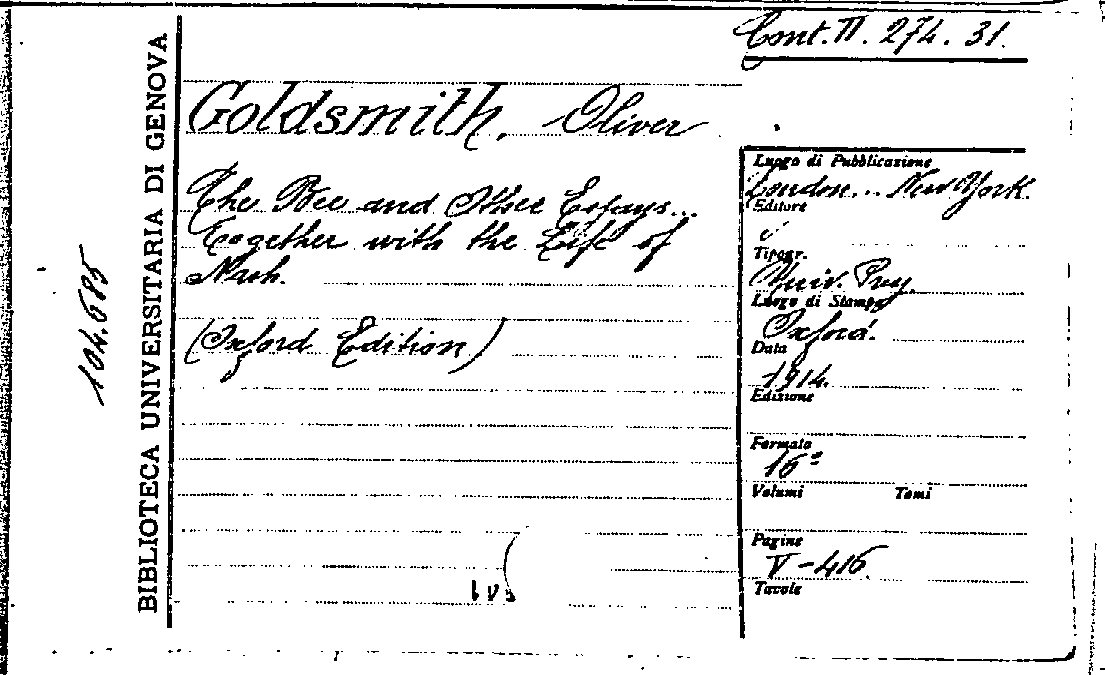 Cont. II. 274. 31.
Goldsmith, Oliver
The Bee and Other Essays...
Together with the Life of
Nash.
(Oxford Edition)
Luogo di Pubblicazione
London... New York.
Editore
Tipogr.
Univ. Press.
Luogo di Stampa
Oxford.
Data
1914.
Edizione
Formato
16º
Volumi Tomi
Pagine
V-416
Tavole
BIBLIOTECA UNIVERSITARIA DI GENOVA
104.685